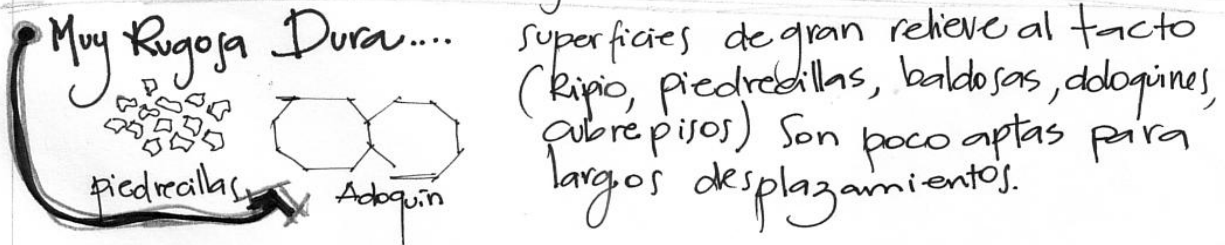 Muy Rugosa Dura....
piedrecillas
Adoquin
superficies de gran relieve al tacto
(Ripio, piedrecillas, baldosas, adoquines,
cubrepisos) Son poco aptas para
largos desplazamientos.